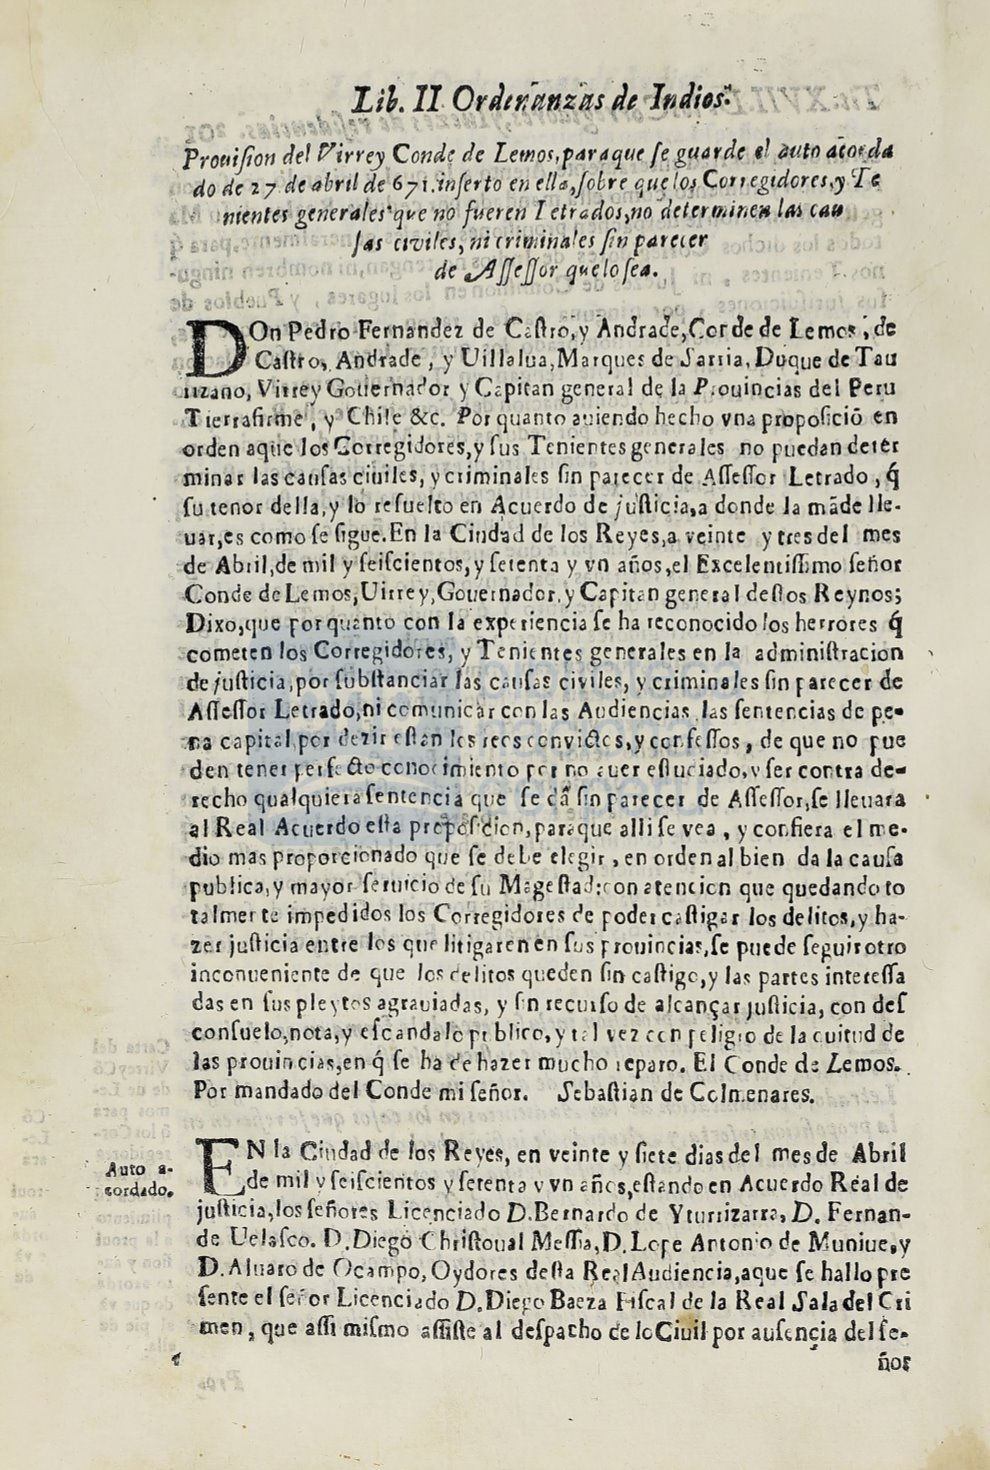 Lib. II Ordenanzas de Indios.
Prouision del Virrey Conde de Lemos, para que se guarde el auto acorda
do de 27 de abril de 671. inserto en ella, sobre que los Corregidores, y Te
nientes generales que no fueren Letrados, no determinen las cau
sas ciuiles, ni criminales sin parecer
de Assessor que lo sea.
DOn Pedro Fernandez de Castro, y Andrade, Conde de Lemos, de
Castro, Andrade, y Uillalua, Marques de Sarria, Duque de Tau
rizano, Virrey Gouernador y Capitan general de la Prouincias del Peru
Tierrafirme, y Chile &c. Por quanto auiendo hecho vna proposiciō en
orden aque los Corregidores, y sus Tenientes generales no puedan deter
minar las causas ciuiles, y criminales sin parecer de Assessor Letrado, q̃
su tenor della, y lo resuelto en Acuerdo de justicia, a donde la mãde lle-
uar, es como se sigue. En la Ciudad de los Reyes, a veinte y tres del mes
de Abril, de mil y seiscientos, y setenta y vn años, el Excelentissimo señor
Conde de Lemos, Uirrey, Gouernador, y Capitan general destos Reynos;
Dixo, que por quanto con la experiencia se ha reconocido los herrores q̃
cometen los Corregidores, y Tenientes generales en la administracion
de justicia, por substanciar las causas civiles, y criminales sin parecer de
Assessor Letrado, ni comunicar con las Audiencias las sentencias de pe-
na capital por dezir estan los reos convictos, y confessos, de que no pue
den tener perfecto conocimiento por no auer estudiado, y ser contra de-
recho qualquiera sentencia que se dà sin parecer de Assessor, se lleuara
al Real Acuerdo esta proposicion, paraque alli se vea, y confiera el me-
dio mas proporcionado que se debe elegir, en orden al bien da la causa
publica, y mayor seruicio de su Magestad; con atencion que quedando to
talmente impedidos los Corregidores de poder castigar los delitos, y ha-
zer justicia entre los que litigaren en sus prouincias, se puede seguir otro
inconueniente de que los delitos queden sin castigo, y las partes interessa
das en sus pleytos agrauiadas, y sin recurso de alcançar justicia, con des
consuelo, nota, y escandalo publico, y tal vez con peligro de la quitud de
las prouincias, en q̃ se ha de hazer mucho reparo. El Conde de Lemos.
Por mandado del Conde mi señor. Sebastian de Colmenares.
Auto a-
cordado.
EN la Ciudad de los Reyes, en veinte y siete dias del mes de Abril
de mil y seiscientos y setenta y vn años, estando en Acuerdo Real de
justicia, los señores Licenciado D. Bernardo de Yturrizarra, D. Fernan-
de Uelasco. D. Diego Christoual Messia, D. Lope Antonio de Muniue, y
D. Aluaro de Ocampo, Oydores desta Real Audiencia, aque se hallo pre
sente el señor Licenciado D. Diego Baeza Fiscal de la Real Sala del Cri
men, que assi mismo assiste al despacho de lo Ciuil por ausencia del se-
ñor